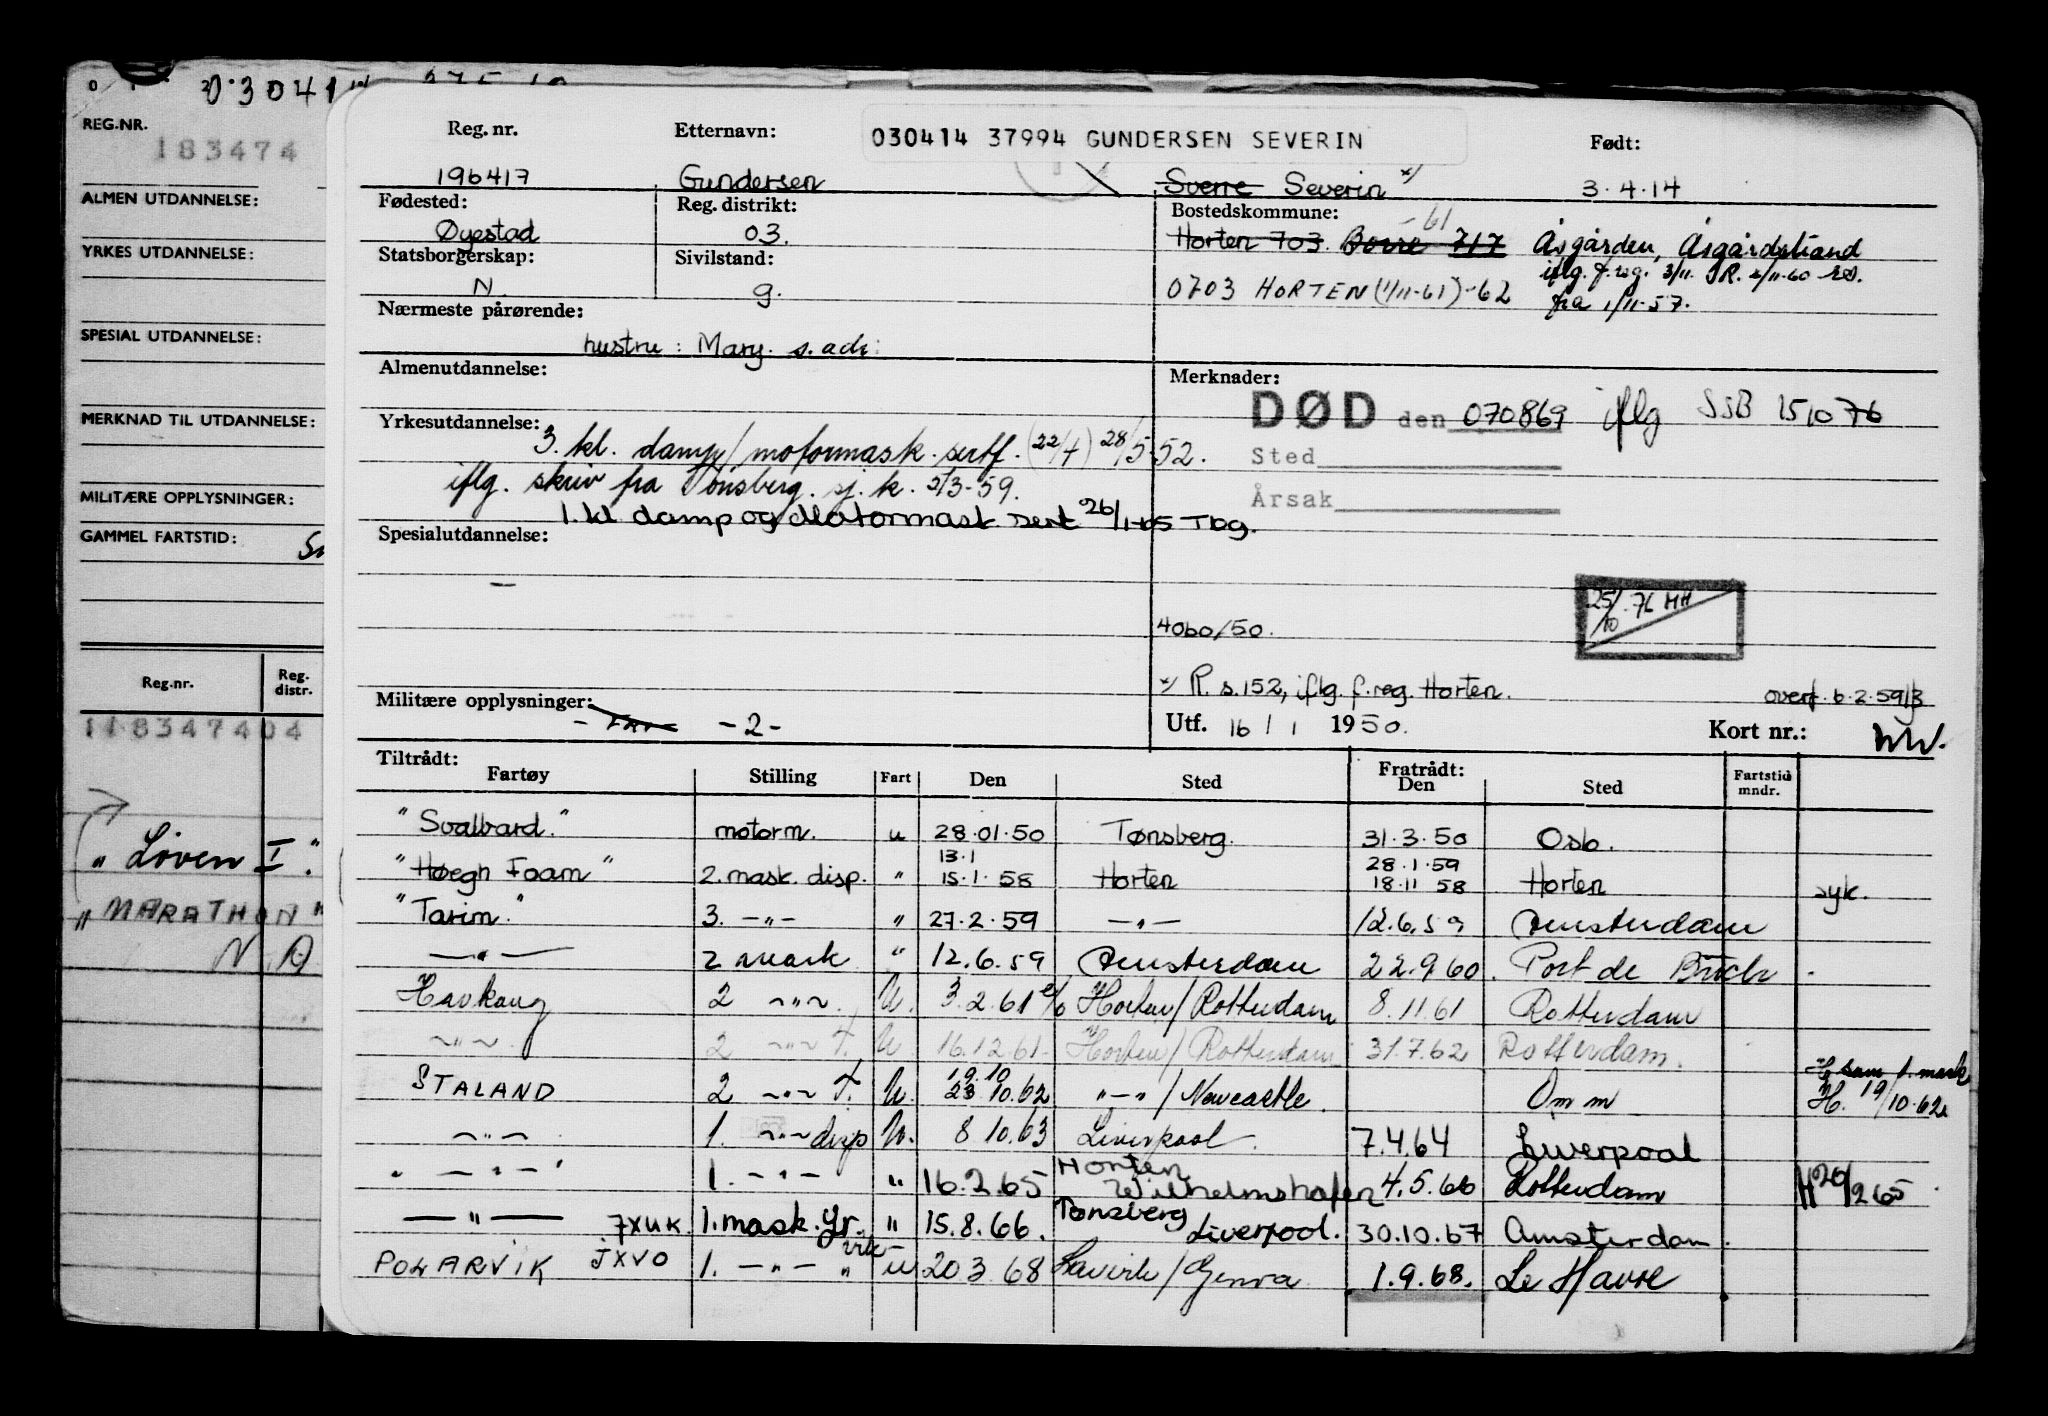 030414
REG.NR.
183474
ALMEN UTDANNELSE:
YRKES UTDANNELSE:
SPESIAL UTDANNELSE:
MERKNAD TIL UTDANNELSE:
MILITÆRE OPPLYSNINGER:
GAMMEL FARTSTID:
Reg.nr. Reg. distr.
118347404
"Löven I".
"MARATHON"
N.A
Reg. nr. Etternavn: 030414 37994 GUNDERSEN SEVERIN Født:
196417 Gundersen Sverre Severin x/ 3.4.14
Fødested: Reg. distrikt: Bostedskommune:
-61
Øyestad 03. Horten 703. Borre 717 Åsgården, Åsgårdstrand
Statsborgerskap: Sivilstand: iflg. f.reg. 3/11.
N. g. 0703 HORTEN (1/11-61)-62 fra 1/11-57.
Nærmeste pårørende:
hustru: Mary. s. adr:
Almenutdannelse: Merknader:
DØD den 070869 iflg SSB 151076
Yrkesutdannelse: 3. kl. damp/motormask. sertf. (22/4) 28/5-52. Sted
iflg. skriv fra Tønsberg. sj. k. 2/3-59. Årsak
1. kl damp og Motormask sert 26/1-65 Tbg.
Spesialutdannelse:
—
25/10.76 HH
4060/50.
x/ R. s. 152, iflg. f.reg. Horten. overf. 6.2.59
Militære opplysninger: -2- Utf. 16/1 1950. Kort nr.:
Tiltrådt: Fratrådt:
Fartøy Stilling Fart Den Sted Den Sted Fartstid mndr.
"Svalbard." motorm. u 28.01.50 Tønsberg. 31.3.50 Oslo.
13.1 28.1.59
"Høegh Foam" 2. mask. disp. " 15.1.58 Horten 18.11 58 Horten syk.
"Tarim." 3. —"— " 27.2.59 —"— 12.6.59 Amsterdam
—"— 2 mask " 12.6.59 Amsterdam 22.9.60. Port de
Havkong 2 ~"~ U. 3.2.61 Horten/Rotterdam 8.11.61 Rotterdam
~"~ 2 ~"~ f. U. 16.12.61 Horten/Rotterdam 31.7.62 Rotterdam.
19.10 H. som 1. mask
STALAND 2 ~"~ f. U. 23 10.62 "—"/Newcastle. Omm H. 19/10.62
~"~ 1. ~"~ disp U. 8 10.63 Liverpool 7.4.64 Liverpool
" —"—" 1. —"— " 16.2.65 Horten Wilhelmshafen 4.5.66 Rotterdam H 20/2 65
—"— JXUK. 1. mask. yr. " 15.8.66. Tønsberg Liverpool. 30.10.67 Amsterdam.
POLARVIK JXVO 1. —"— " u 20 3 68 Larvik/Genova 1.9.68. Le Havre